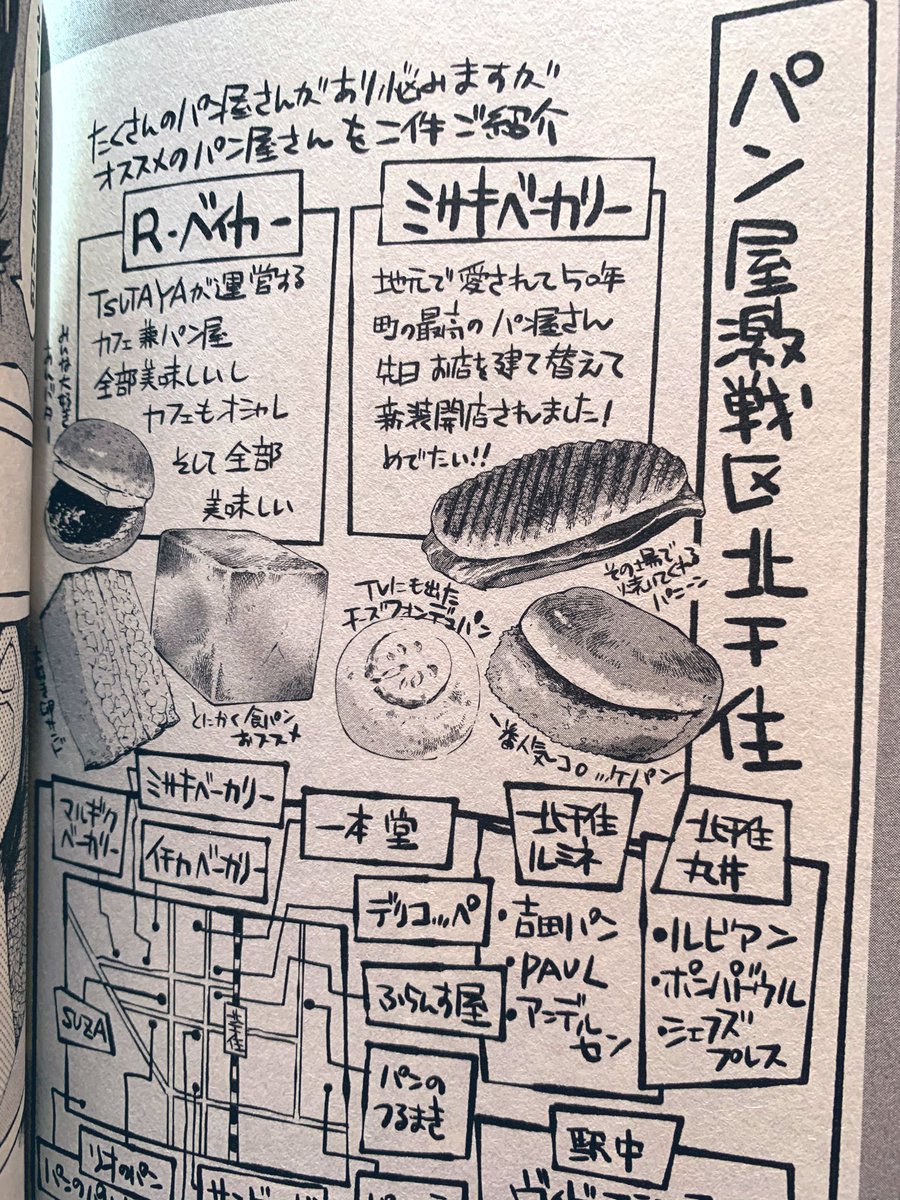 パン屋激戦区北千住
たくさんのパン屋さんがあり悩みますが
オススメのパン屋さんを二件ご紹介
ミサキベーカリー
地元で愛されて50年
町の最高のパン屋さん
先日お店を建て替えて
新装開店されました!
めでたい!!
R・ベイカー
TSUTAYAが運営する
カフェ兼パン屋
全部美味しいし
カフェもオシャレ
そして全部
美味しい
みんな大好き
あんバター
その場で
焼いてくれる
パニーニ
TVにも出た
チーズフォンデュパン
一番人気コロッケパン
とにかく食パン
おススメ
ミサキベーカリー
マルギク
ベーカリー
イチカベーカリー
一本堂
北千住
ルミネ
・吉田パン
・PAUL
・アンデル
セン
北千住
丸井
・ルビアン
・ポンパドウル
・シェフズ
プレス
デリコッペ
ふらんす屋
SUZA
パンの
つるまき
駅中
リオのパン